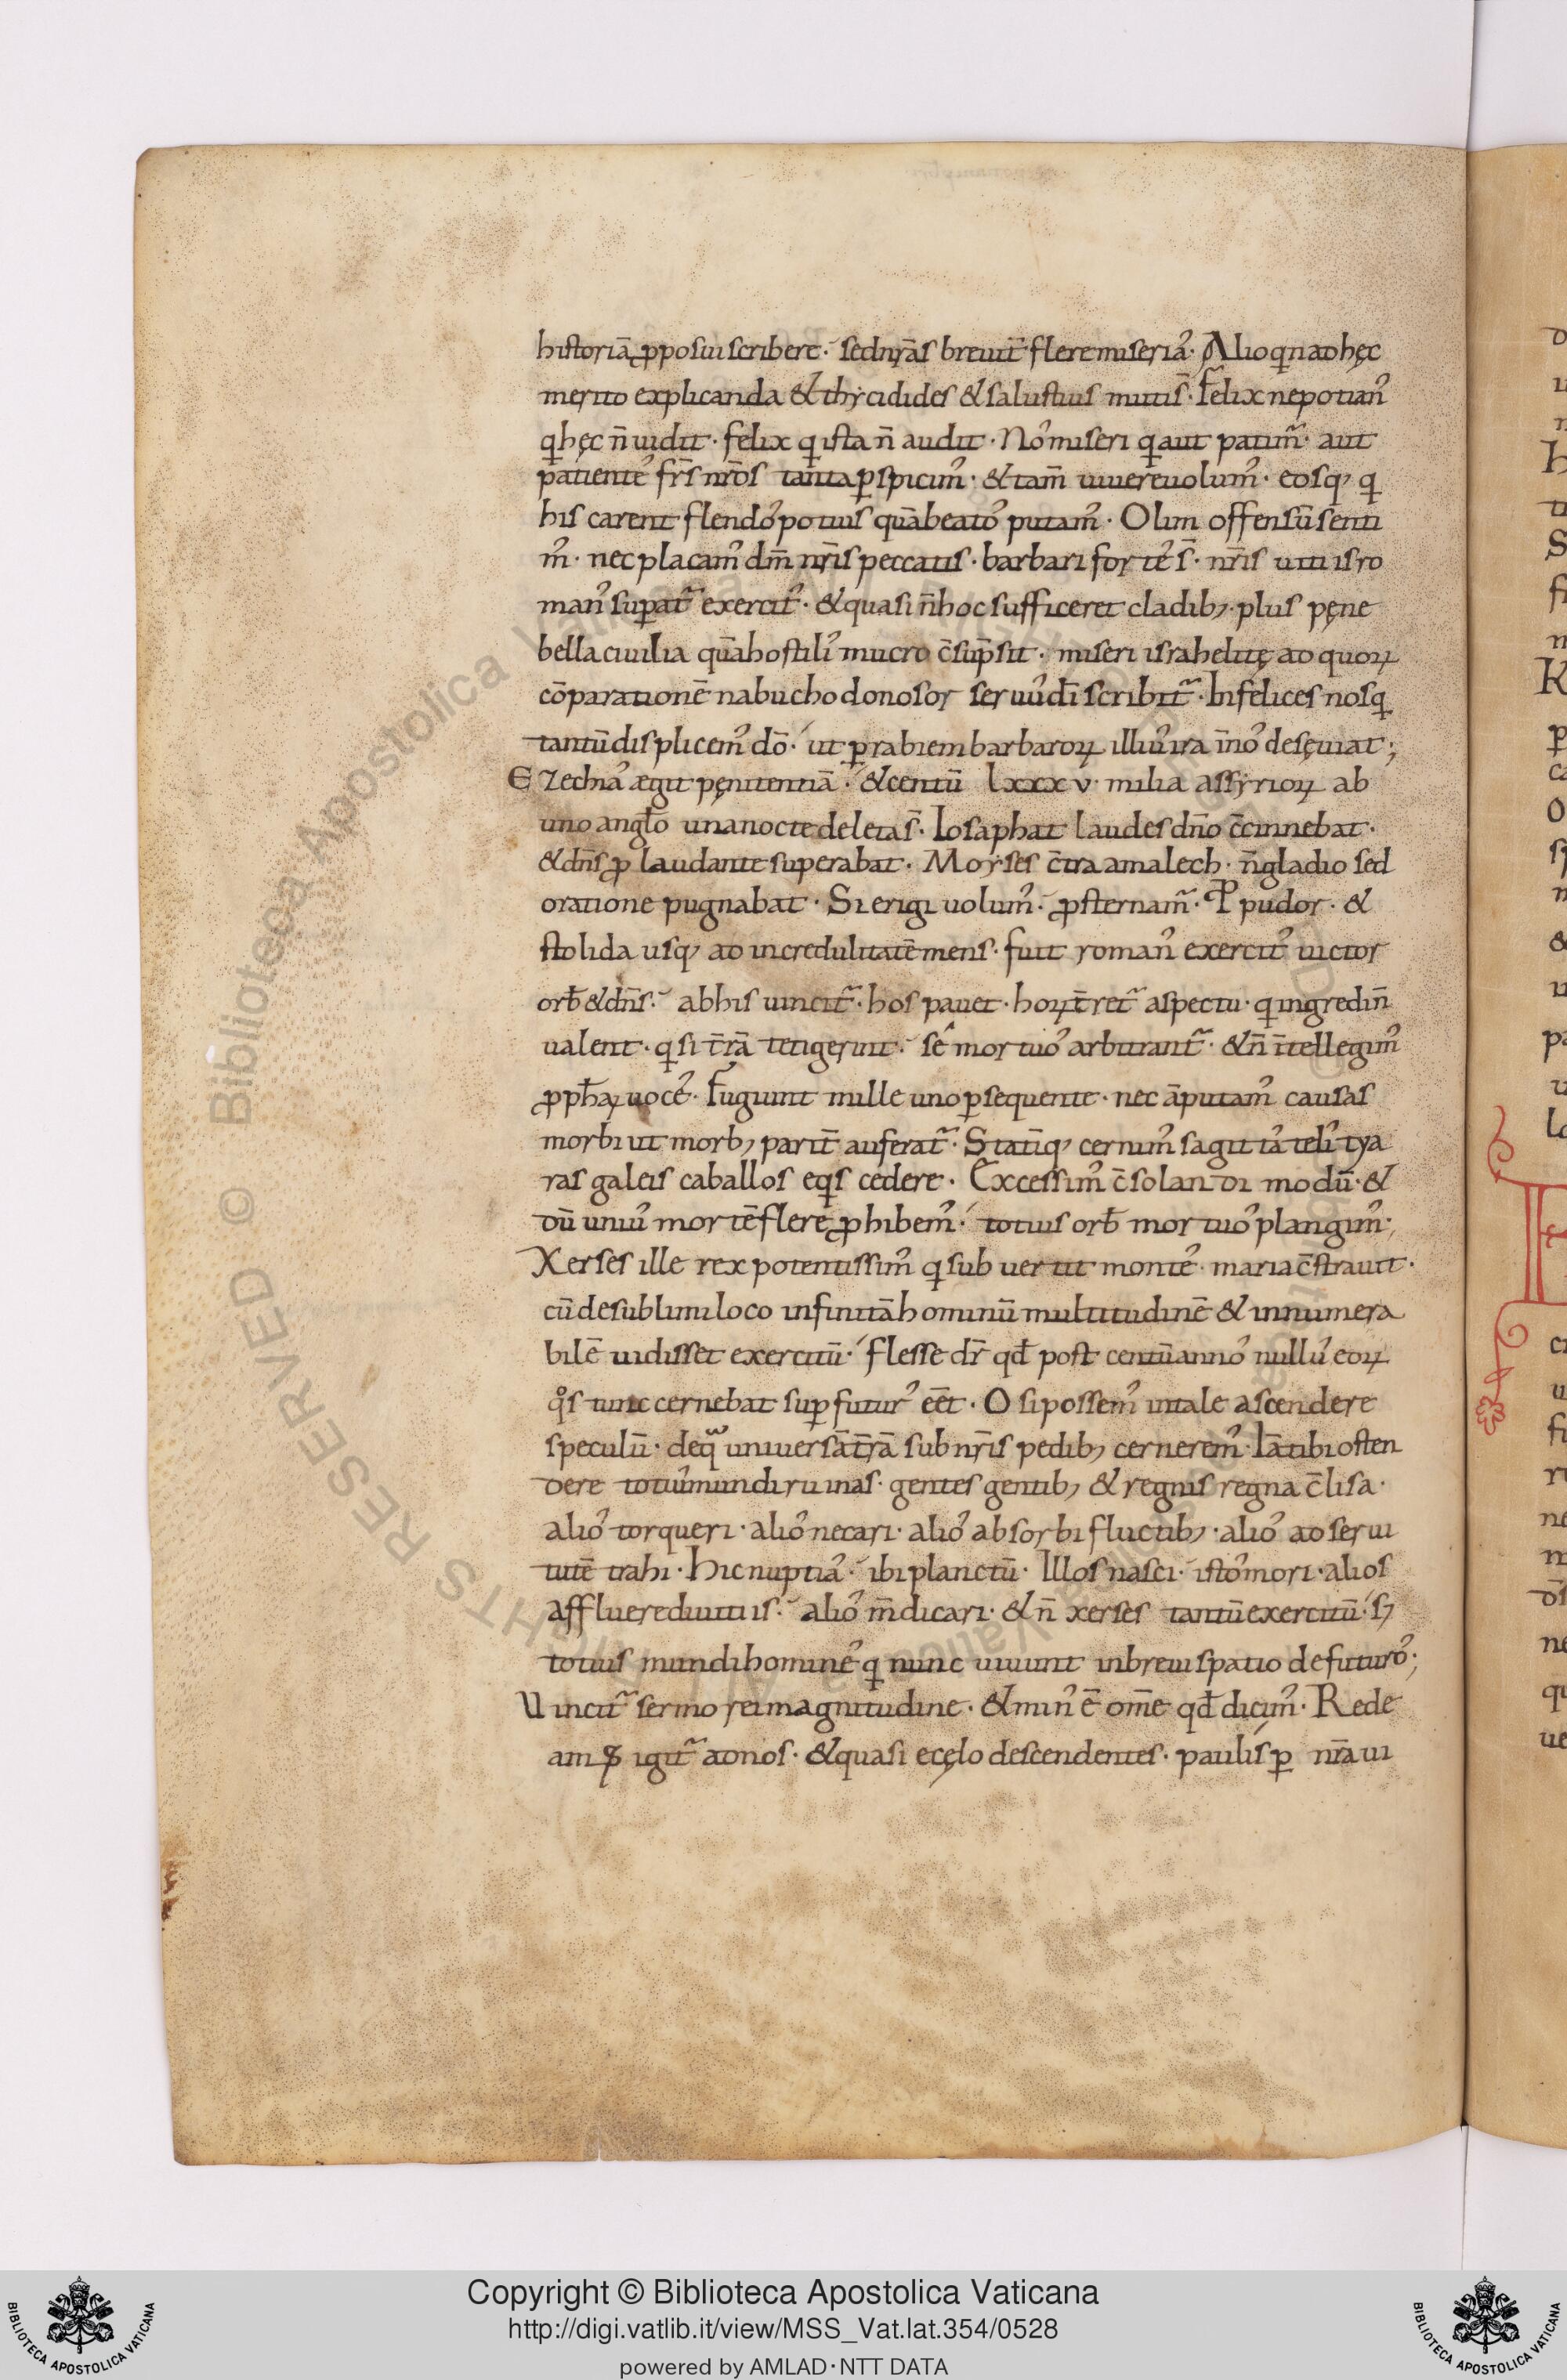 historiā ꝓposui scribere. sed nr̄as breuit̄ flere miserias. Alioq̇n ad hęc
merito explicanda & thycidides & salustius muti s̄. Felix nepotian᾽
q̇ hęc n̄ uidit. felix q̇ ista n̄ audit. Nos miseri q̇ aut patimur. aut
patientes fr̄s nr̄os tanta ꝑspicim᾽. & tam̄ uiuere uolum᾽. eosq, q̇
his carent flendos potius quā beatos putam᾽. Olim offensū senti
m᾽. nec placam᾽ dm̄ nr̄is peccatis. barbari fortes s̄. nr̄is uitiis ro
man᾽ suꝑatr̃ exercit᾽. & quasi n̄ hoc sufficeret cladib; plus pęne
bella ciuilia quā hostilis mucro c̄sūpsit. miseri israhelitę ad quoꝝ
cōparationē nabuchodonosor seruus dī scribitr̃. Infelices nos q̇
tantū displicem᾽ dō. ut ꝑ rabiem barbaroꝝ illius ira ī nos desęuiat;
Ezechias ægit pęnitentiā. & centū lxxxv. milia assyrioꝝ ab
uno angło una nocte deleta s̄. Iosaphat laudes dn̄o c̄cinnebat.
& dn̄s ꝓ laudante superabat. Moyses c̄tra amalech. n̄ gladio sed
oratione pugnabat. Si erigi uolum᾽. ꝓsternamr̃. P pudor. &
stolida usq, ad incredulitatē mens. fuit roman᾽ exercit᾽ uictor
orb̄ & dn̄s. ab his uincitr̃. hos pauet. hoꝝ t̄retr̃ aspectu. q̇ ingredi n̄
ualent. q̇ si t̄rā tetigerint. se mortuos arbitrantr̃. & n̄ ītellegim᾽
ꝓph̄aꝝ uoces. Fugiunt mille uno ꝑsequente. nec āputam᾽ causas
morbi ut morb; parit̄ auferatr̃. Statīq, cernim᾽ sagittas telis tya
ras galeis caballos eq̇s cedere. Excessim᾽ c̄solandi modū. &
dū unius mortē flere ꝓhibem᾽. totius orb̄ mortuos plangim᾽;
Xerses ille rex potentissim᾽ q̇ subuertit montes. maria c̄strauit.
cū de sublimi loco infinitā hominū multitudinē & innumera
bilē uidisset exercitū. flesse dr̄ qd̄ post centū annos nullus eoꝝ
q̊s tunc cernebat suꝑ futur᾽ eēt. O si possem᾽ in tale ascendere
speculū. de qua uniuersā t̄rā sub nr̄is pedib; cernerem᾽. Iā tibi osten
dere totius mundi ruinas. gentes gentib; & regnis regna c̄lisa.
alios torqueri. alios necari. alios absorbi fluctib;. alios ad serui
tutē trahi. Hic nuptias. ibi planctū. Illos nasci. istos mori. alios
affluere diuitiis. alios m̄dicari. & n̄ xerses tantū exercitū. s;
totius mundi homines q̇ nunc uiuunt in breui spatio defuturos;
Uincitr̃ sermo rei magnitudine. & min᾽ ē om̄e qd̄ dicim᾽. Rede
am᾽ igitr̃ ad nos. & quasi e cęlo descendentes. paulisꝑ nr̄a ui
Copyright © Biblioteca Apostolica Vaticana
http://digi.vatlib.it/view/MSS_Vat.lat.354/0528
powered by AMLAD·NTT DATA